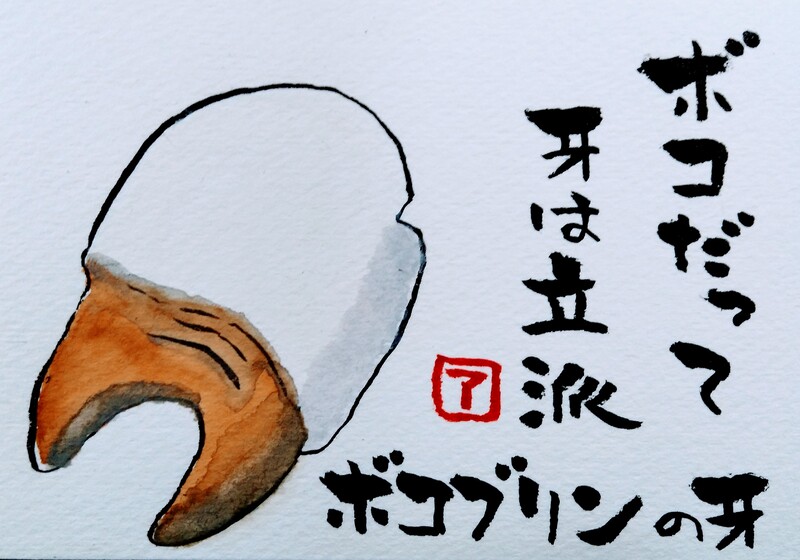 ボコだって
牙は立派
ア
ボコブリンの牙